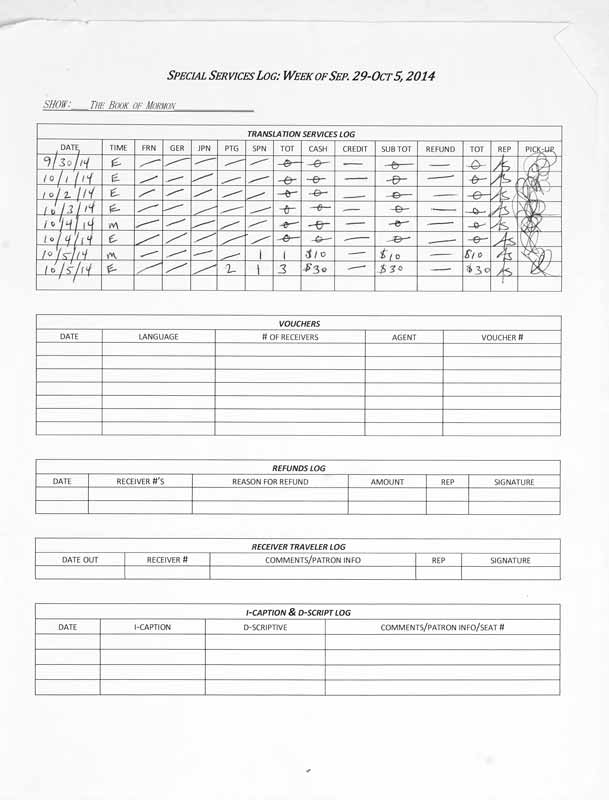 SPECIAL SERVICES LOG: WEEK OF SEP. 29-OCT 5, 2014
SHOW: THE BOOK OF MORMON
TRANSLATION SERVICES LOG
DATE TIME FRN GER JPN PTG SPN TOT CASH CREDIT SUB TOT REFUND TOT REP PICK-UP
9/30/14 E — — — — — 0 0 — 0 — 0 AS
10/1/14 E — — — — — 0 0 — 0 — 0 AS
10/2/14 E — — — — — 0 0 — 0 — 0 AS
10/3/14 E — — — — — 0 0 — 0 — 0 AS
10/4/14 M — — — — — 0 0 — 0 — 0 AS
10/4/14 E — — — — — 0 0 — 0 — 0 AS
10/5/14 M — — — — 1 1 $10 — $10 — $10 AS
10/5/14 E — — — 2 1 3 $30 — $30 — $30 AS
VOUCHERS
DATE LANGUAGE # OF RECEIVERS AGENT VOUCHER #
REFUNDS LOG
DATE RECEIVER #'S REASON FOR REFUND AMOUNT REP SIGNATURE
RECEIVER TRAVELER LOG
DATE OUT RECEIVER # COMMENTS/PATRON INFO REP SIGNATURE
I-CAPTION & D-SCRIPT LOG
DATE I-CAPTION D-SCRIPTIVE COMMENTS/PATRON INFO/SEAT #